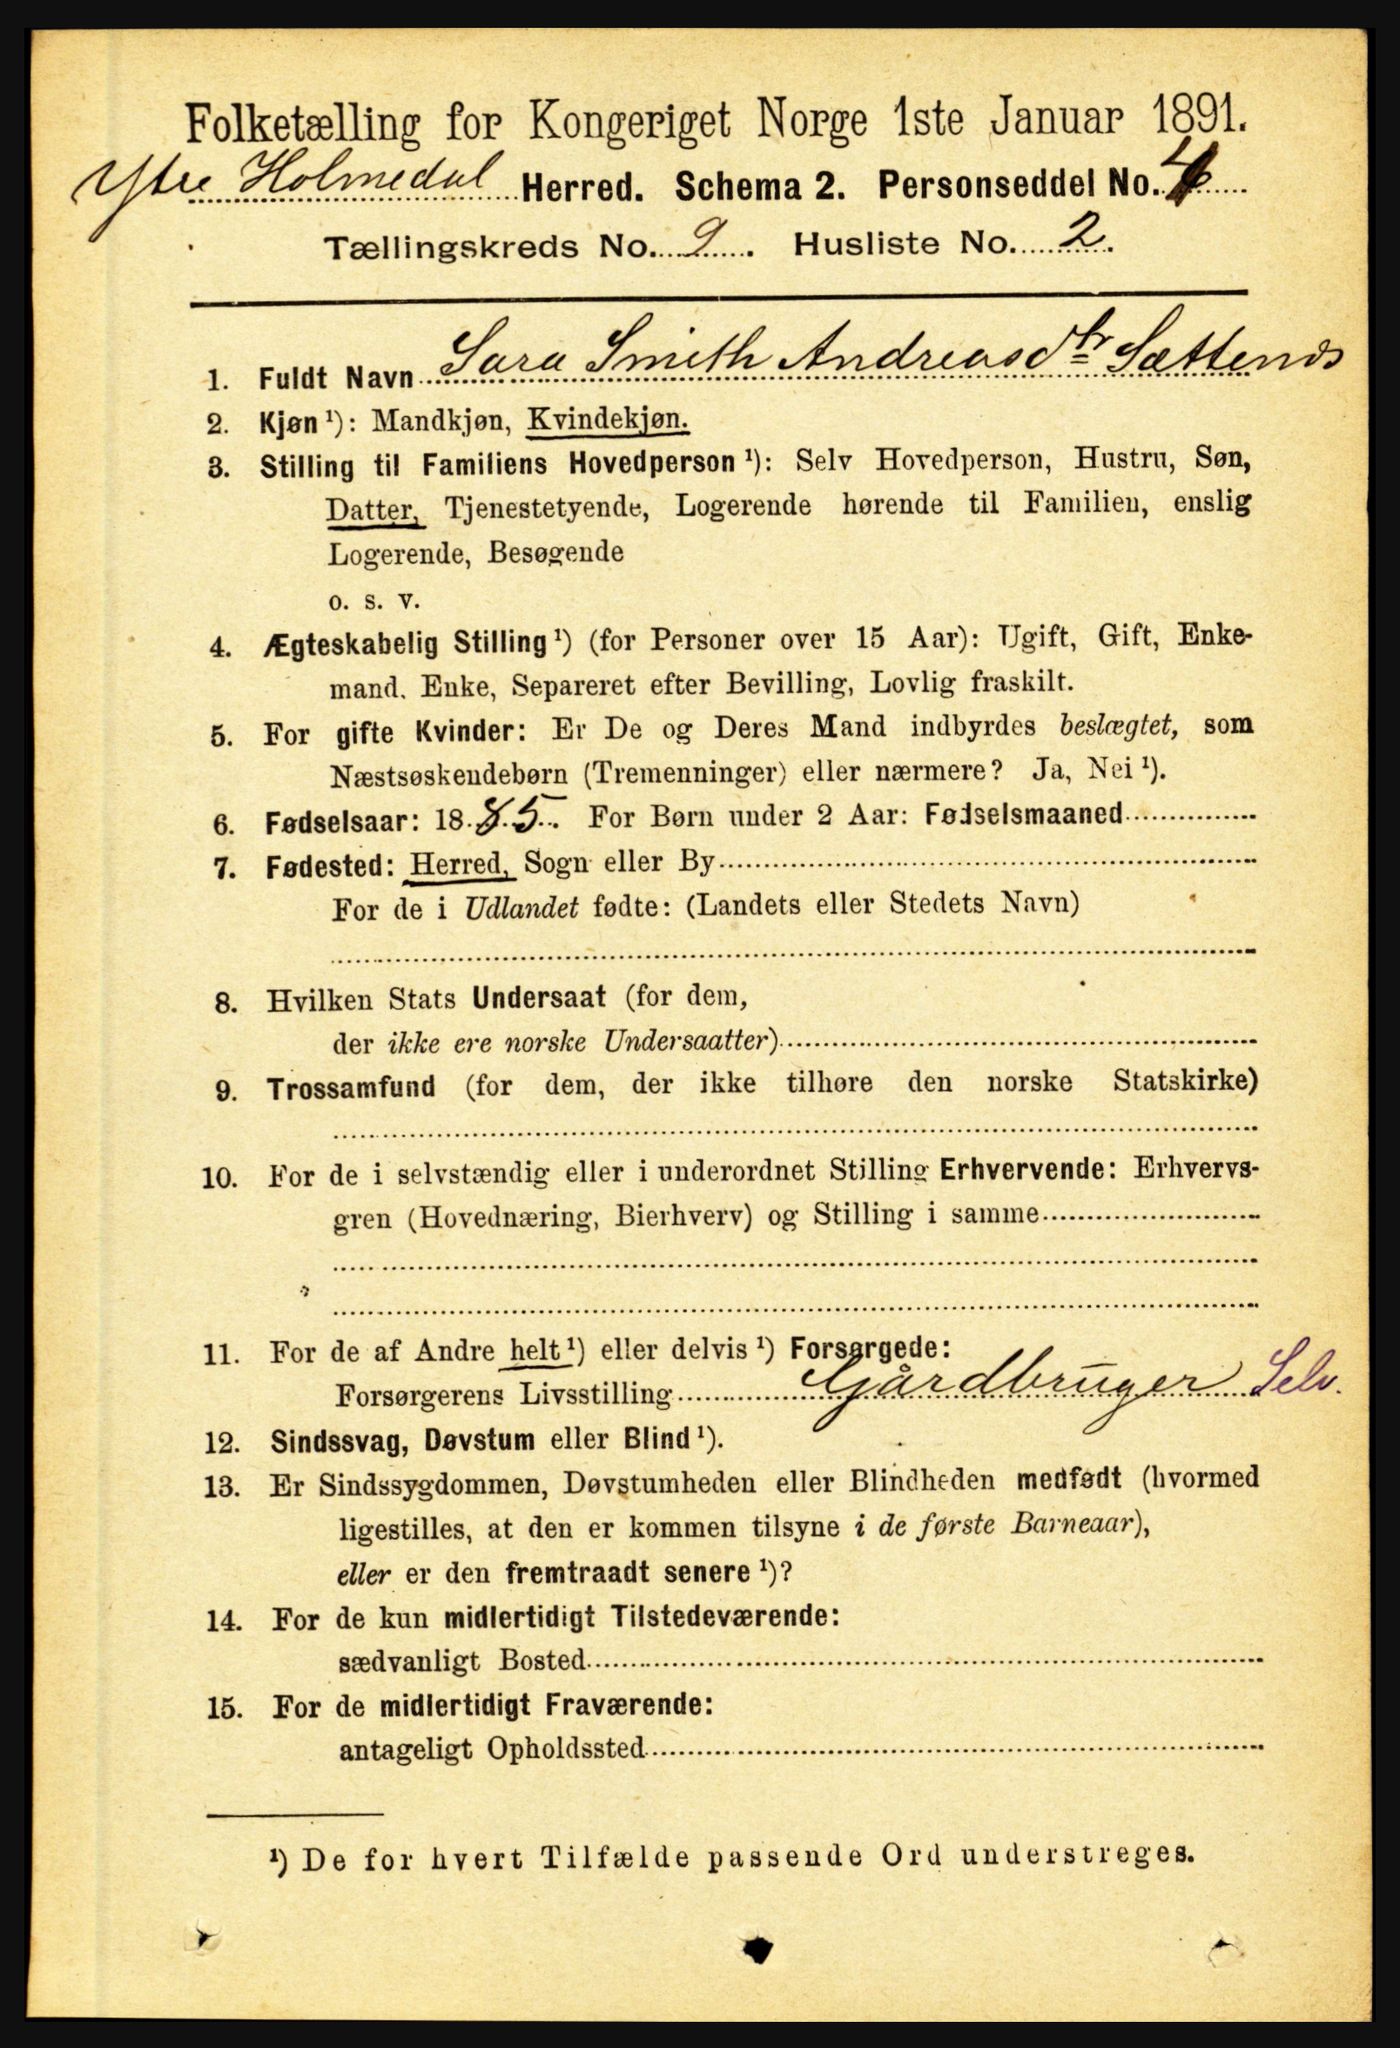 Folketælling for Kongeriget Norge 1ste Januar 1891.
Ytre Holmedal Herred. Schema 2. Personseddel No. 4
Tællingskreds No. 9. Husliste No. 2.
1. Fuldt Navn Sara Smith Andreasdtr Sættenes
2. Kjøn ¹): Mandkjøn, Kvindekjøn.
3. Stilling til Familiens Hovedperson ¹): Selv Hovedperson, Hustru, Søn,
Datter, Tjenestetyende, Logerende hørende til Familien, enslig
Logerende, Besøgende
o. s. v.
4. Ægteskabelig Stilling ¹) (for Personer over 15 Aar): Ugift, Gift, Enke-
mand, Enke, Separeret efter Bevilling, Lovlig fraskilt.
5. For gifte Kvinder: Er De og Deres Mand indbyrdes beslægtet, som
Næstsøskendebørn (Tremenninger) eller nærmere? Ja, Nei ¹).
6. Fødselsaar: 1885. For Børn under 2 Aar: Fødselsmaaned
7. Fødested: Herred, Sogn eller By
For de i Udlandet fødte: (Landets eller Stedets Navn)
8. Hvilken Stats Undersaat (for dem,
der ikke ere norske Undersaatter)
9. Trossamfund (for dem, der ikke tilhøre den norske Statskirke)
10. For de i selvstændig eller i underordnet Stilling Erhvervende: Erhvervs-
gren (Hovednæring, Bierhverv) og Stilling i samme
11. For de af Andre helt ¹) eller delvis ¹) Forsørgede:
Forsørgerens Livsstilling Gårdbruger Selv.
12. Sindssvag, Døvstum eller Blind ¹).
13. Er Sindssygdommen, Døvstumheden eller Blindheden medfødt (hvormed
ligestilles, at den er kommen tilsyne i de første Barneaar),
eller er den fremtraadt senere ¹)?
14. For de kun midlertidigt Tilstedeværende:
sædvanligt Bosted
15. For de midlertidigt Fraværende:
antageligt Opholdssted
¹) De for hvert Tilfælde passende Ord understreges.